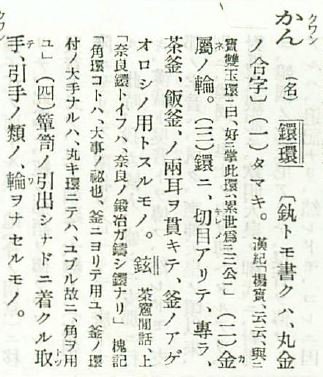 かん (名) 鐶環 〔釻トモ書クハ、丸金
ノ合字〕 (一)タマキ。 漢紀「楊寶、云云、與
寶雙玉環曰、好掌此環累世爲三公」 (二)金
屬ノ輪。(三)鐶ニ、切目アリテ、專ラ、
茶釜、飯釜、ノ兩耳ヲ貫キテ、釜ノアゲ
オロシノ用トスルモノ。鉉 茶窻閒話、上
「奈良鐶トイフハ、奈良ノ鍛冶ガ鑄シ鐶ナリ」 槐記
「角環コトハ、大事ノ祕也、釜ニヨリテ用ユ、釜ノ環
付ノ大手ナルハ、丸キ環ニテハ、ユブル故ニ、角ヲ用
ユ」(四)簞笥ノ引出シナドニ着クル取
手、引手ノ類ノ、輪ヲナセルモノ。